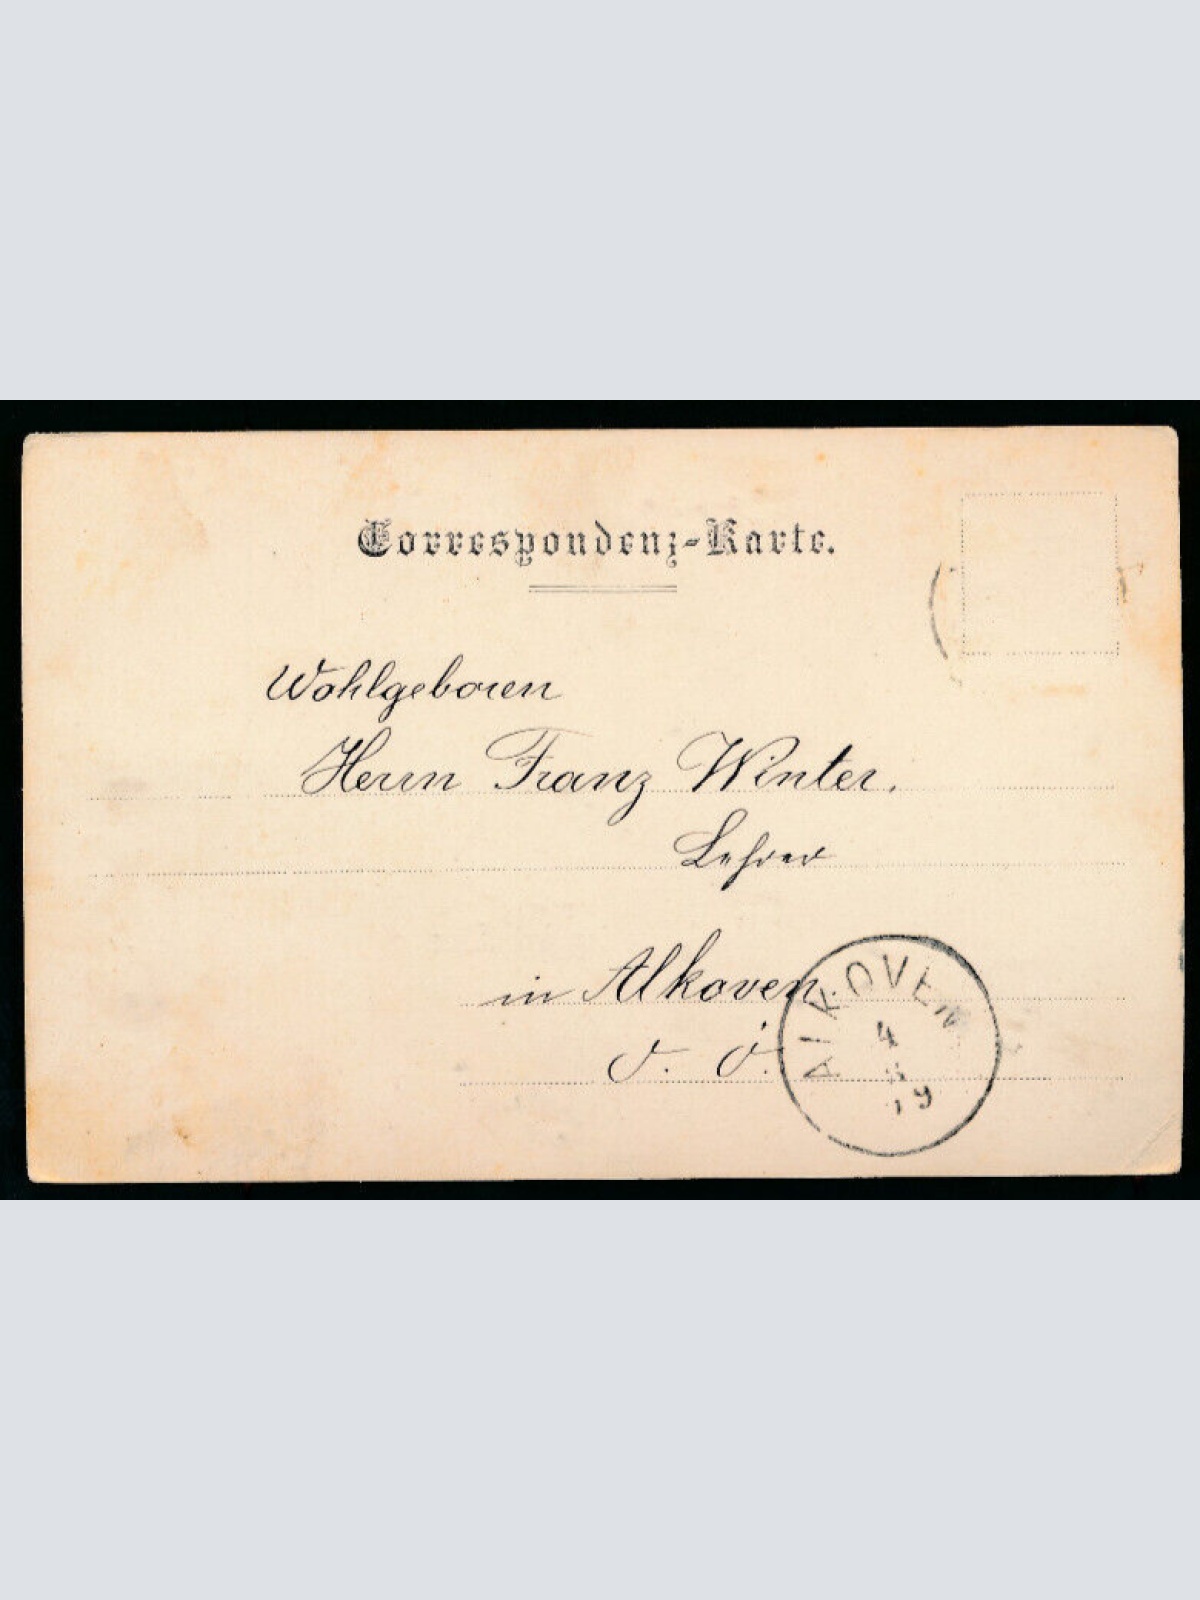 Correspondenz-Karte.
Wohlgeboren
Herrn Franz Winter.
Lehrer
in Alkoven.
O. Ö.
ALKOVEN
4